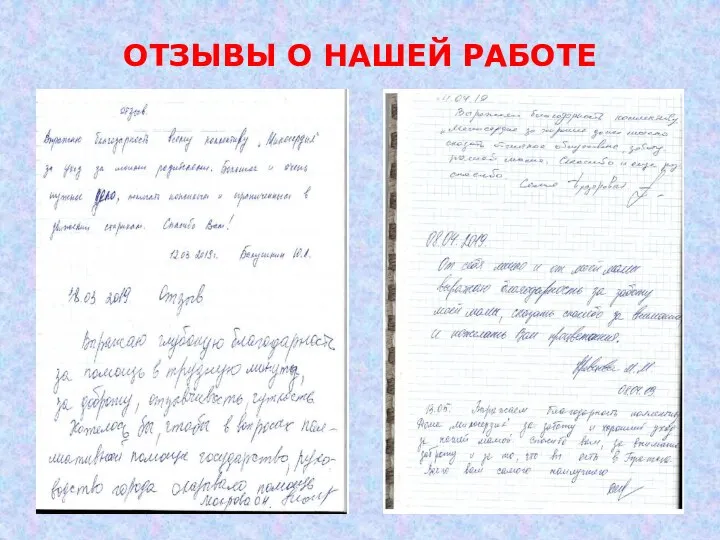 ОТЗЫВЫ О НАШЕЙ РАБОТЕ
Отзыв.
Выражаю благодарность всему коллективу „Милосердия"
за уход за моими родителями. Большое и очень
нужное дело, помогать пожилым и ограниченным в
движении старикам. Спасибо Вам!
12.03.2019г. Ю.А.
18.03 2019 Отзыв
Выражаю глубокую благодарность
за помощь в трудную минуту,
за доброту, отзывчивость, чуткость.
Хотелось бы, чтобы в вопросах пал-
лиативной помощи государство, руко-
водство города оказывало помощь
04.19
Выражаем благодарность коллективу
„Милосердие за хорошее
сказать отличное обслуживание, заботу
нашей мамы. Спасибо и еще раз
спасибо. Семья
08.04.2019.
От себя лично и от моей мамы
выражаю благодарность за заботу
моей мамы, сказать спасибо за внимание
и пожелать Вам процветания.
М.М.
08.04.19
13.05. Выражаем благодарность коллективу
Дома милосердия за заботу и хороший уход
за нашей мамой. Спасибо вам, за внимание
доброту и за то, что вы есть в
Всего вам самого наилучшего